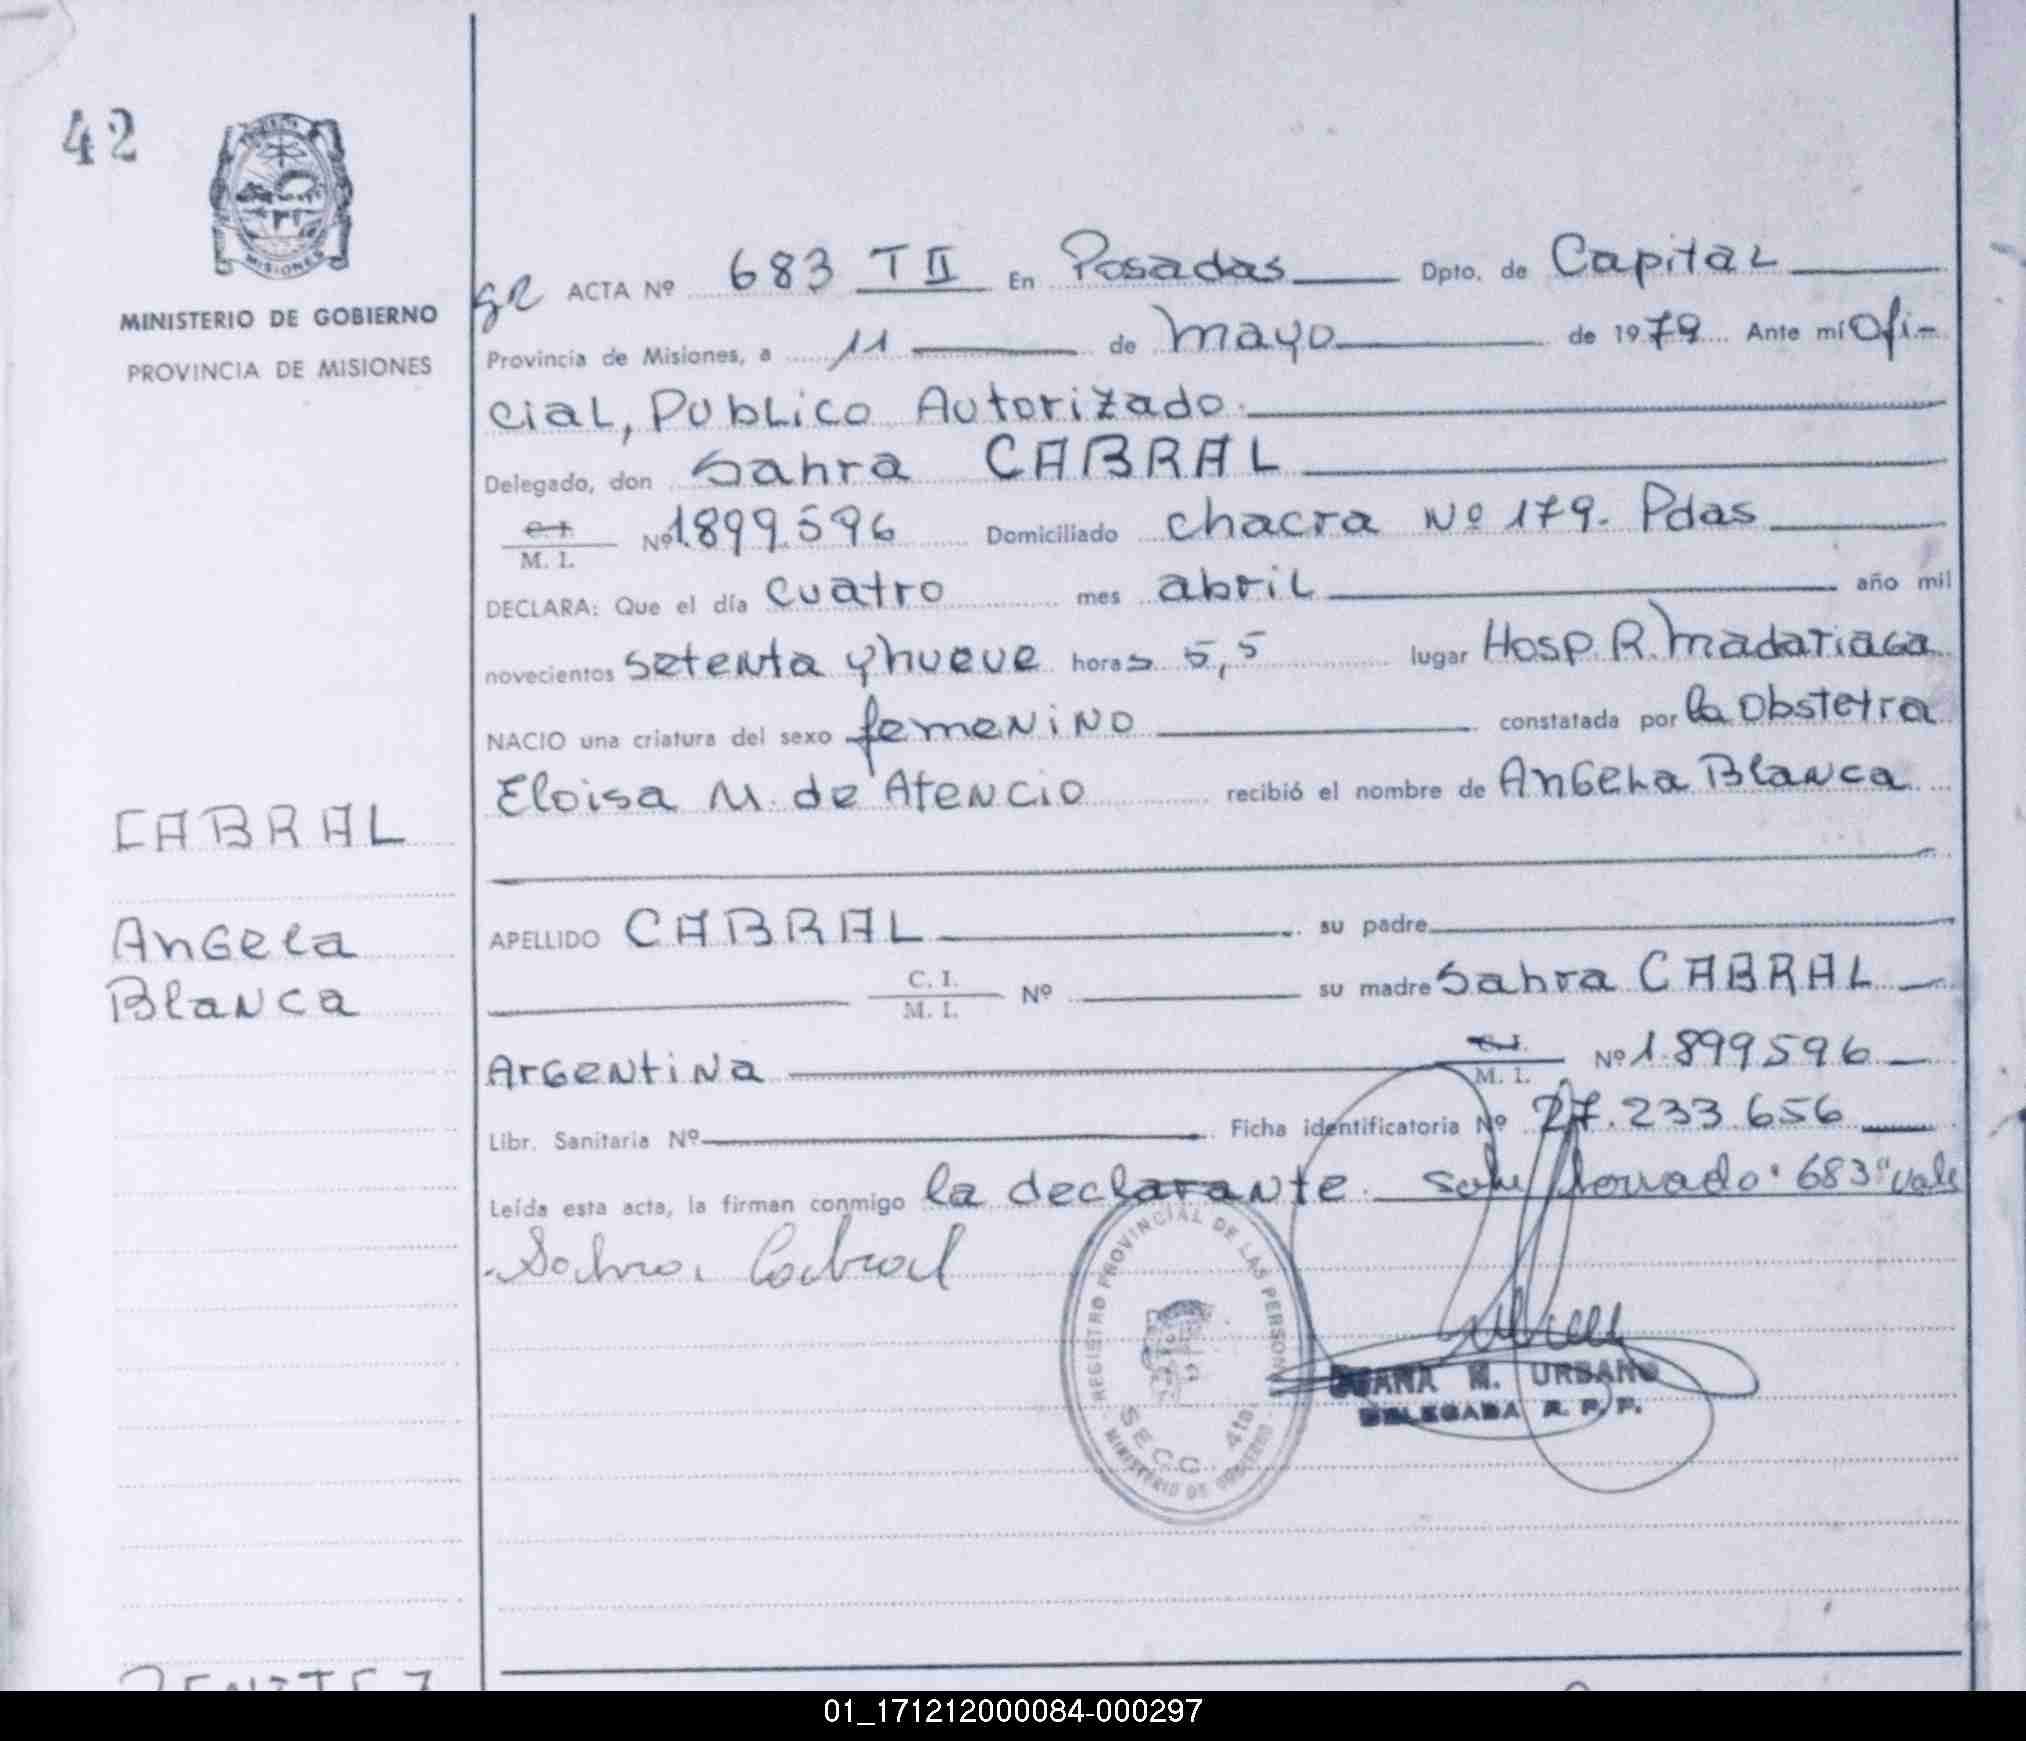 42
MISIONES
MINISTERIO DE GOBIERNO
PROVINCIA DE MISIONES
CABRAL
Angela
Blanca
ACTA Nº 683 T II En Posadas Dpto. de Capital
Provincia de Misiones, a 11 de mayo de 1979 Ante mí Ofi-
cial, Publico Autorizado.
Delegado, don Sahra CABRAL
C.I.
M. I. Nº 1.899.596 Domiciliado chacra Nº 179. Pdas
DECLARA: Que el día cuatro mes abril año mil
novecientos setenta y nueve horas 5,5 lugar Hosp. R. Madariaga
NACIO una criatura del sexo femenino constatada por la obstetra
Eloisa M. de Atencio recibió el nombre de Angela Blanca
APELLIDO CABRAL su padre
C. I.
M. I. Nº su madre Sahra CABRAL
Argentina C.I.
M. I. Nº 1.899596
Libr. Sanitaria Nº Ficha identificatoria Nº 27.233.656
Leída esta acta, la firman conmigo la declarante. Sobre borrado "683" vale
Sahra Cabral
REGISTRO PROVINCIAL DE LAS PERSONAS
SECC. 4ta.
MINISTERIO DE GOBIERNO
JUANA M. URBANO
DELEGADA R. P. P.
01_171212000084-000297